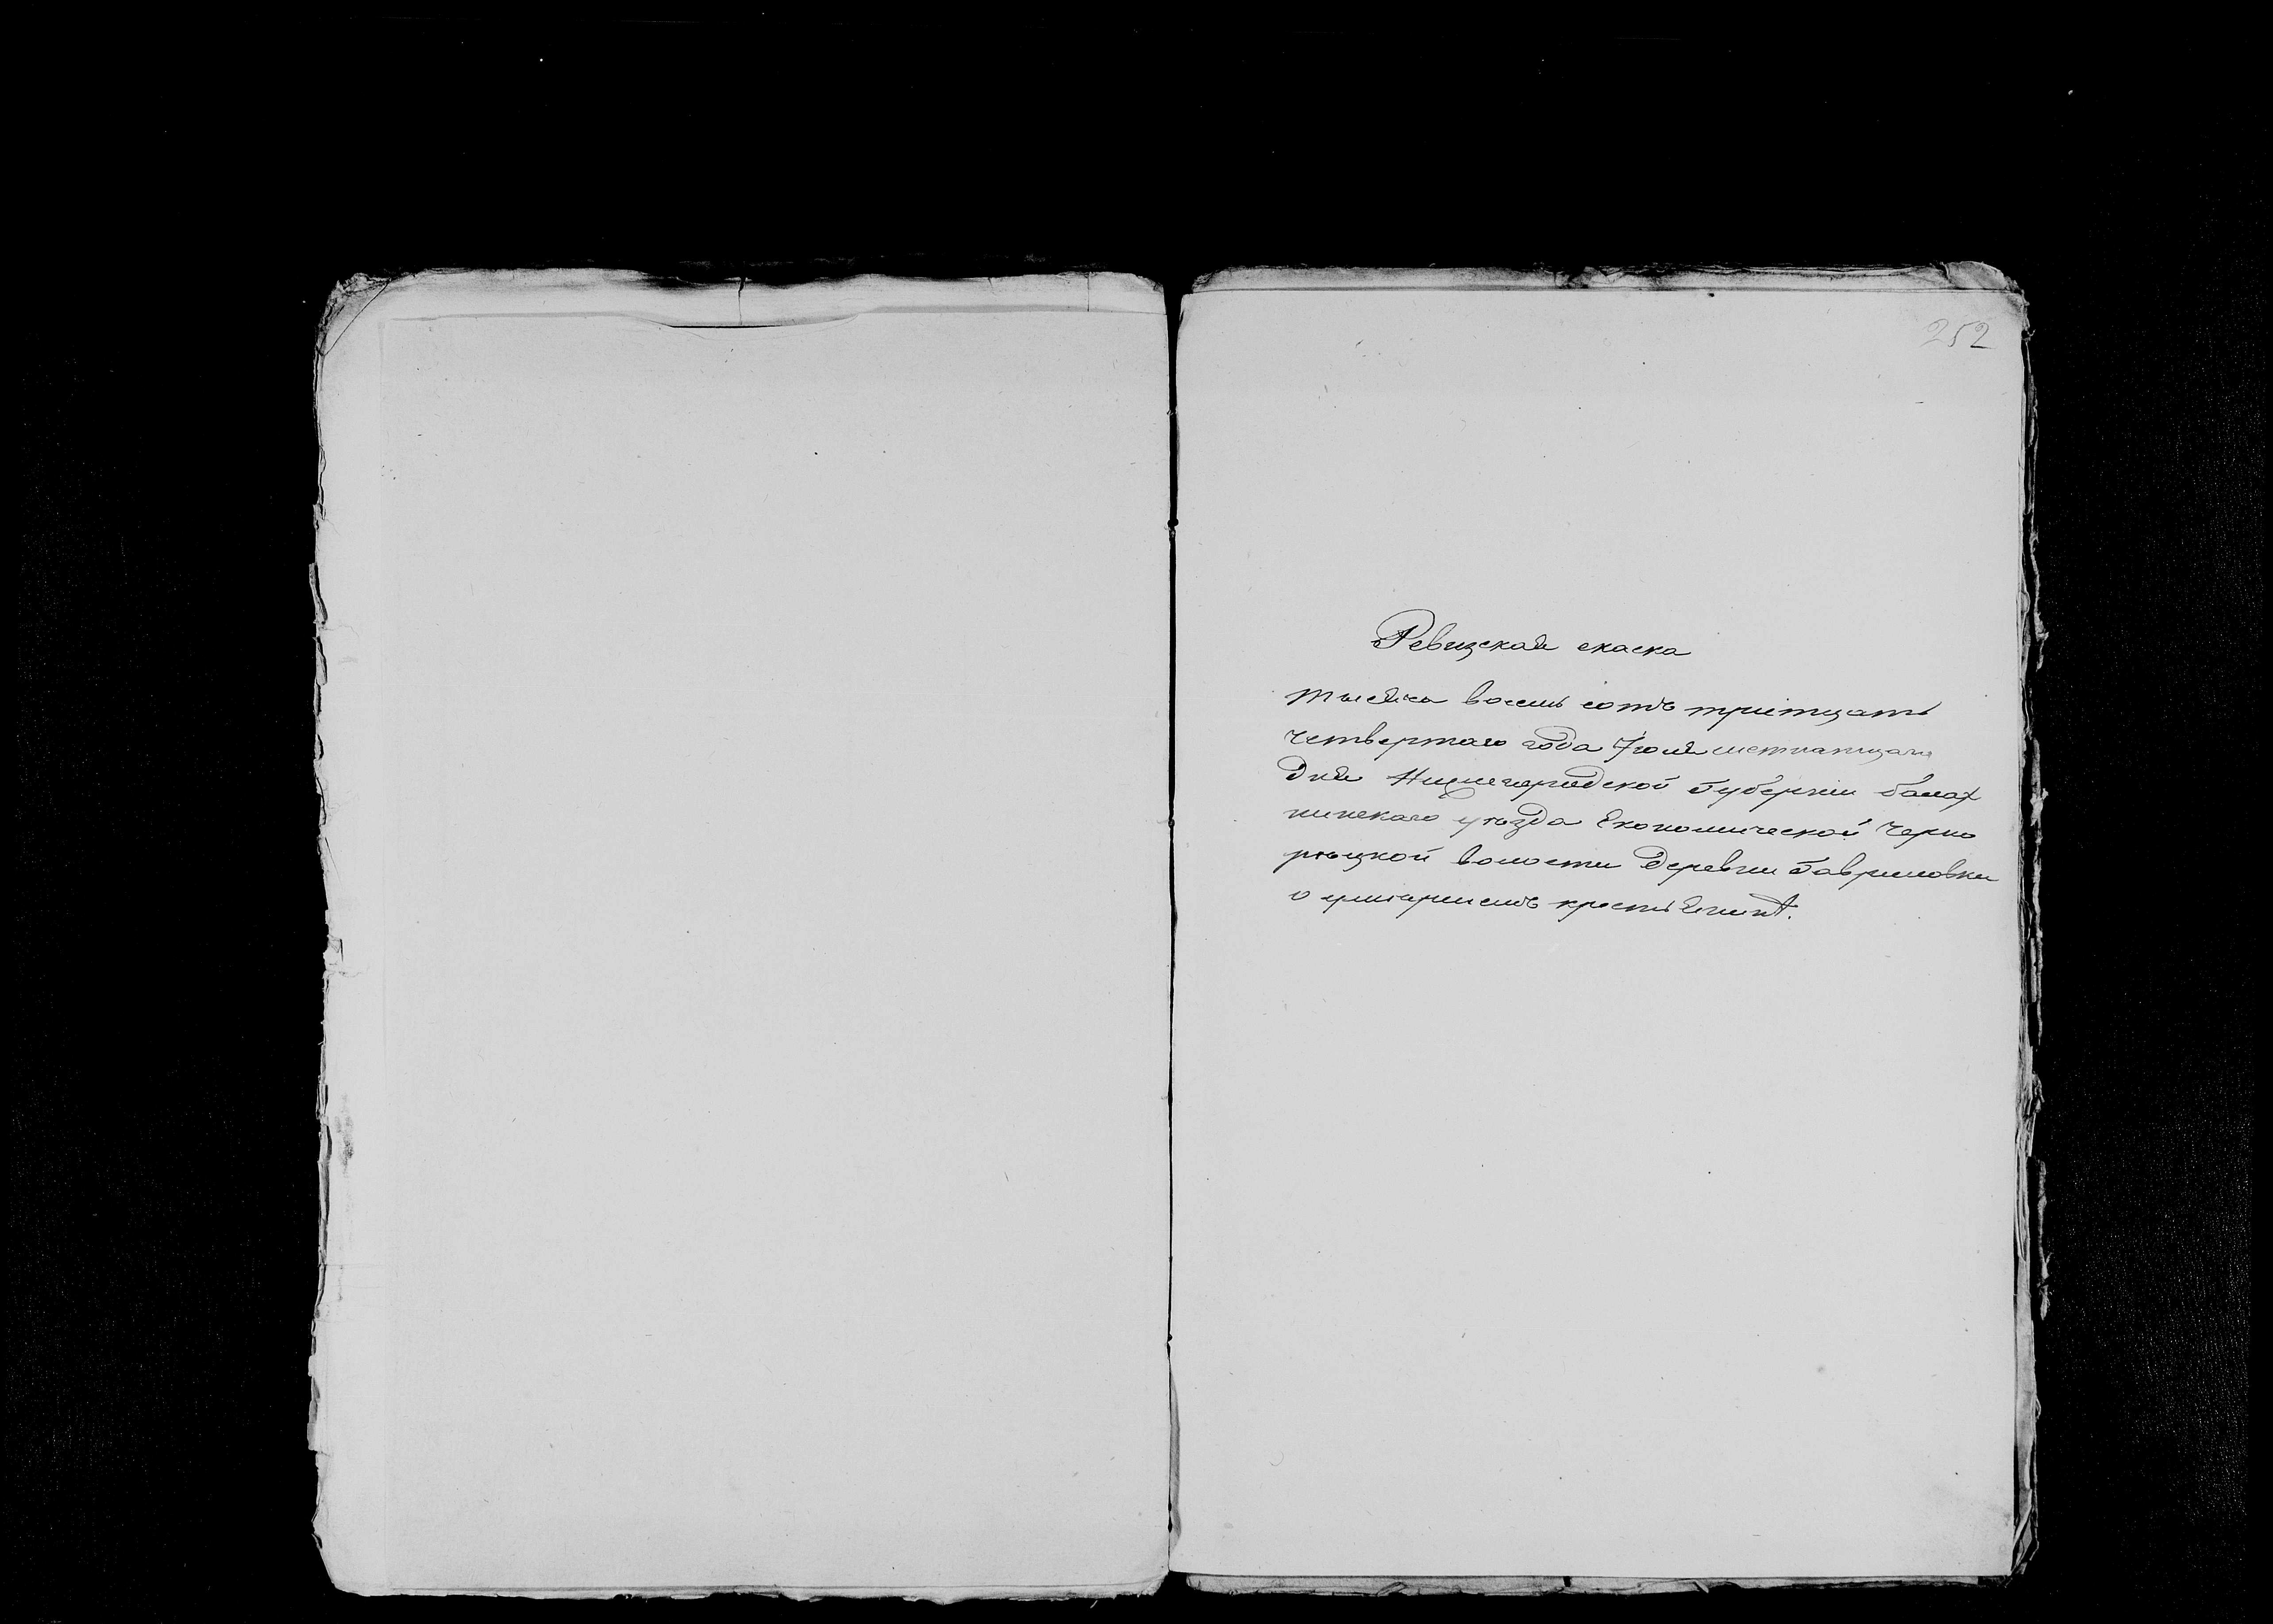 252
Ревизская скаска
тысяча восемь сотъ тритцать
четвертаго года Июля шетнатцаго
дня Нижегородской Губернии балах
нинскаго уѣзда Економической Черно
рѣцкой волости деревни Гавриловки
о крестьянъ.